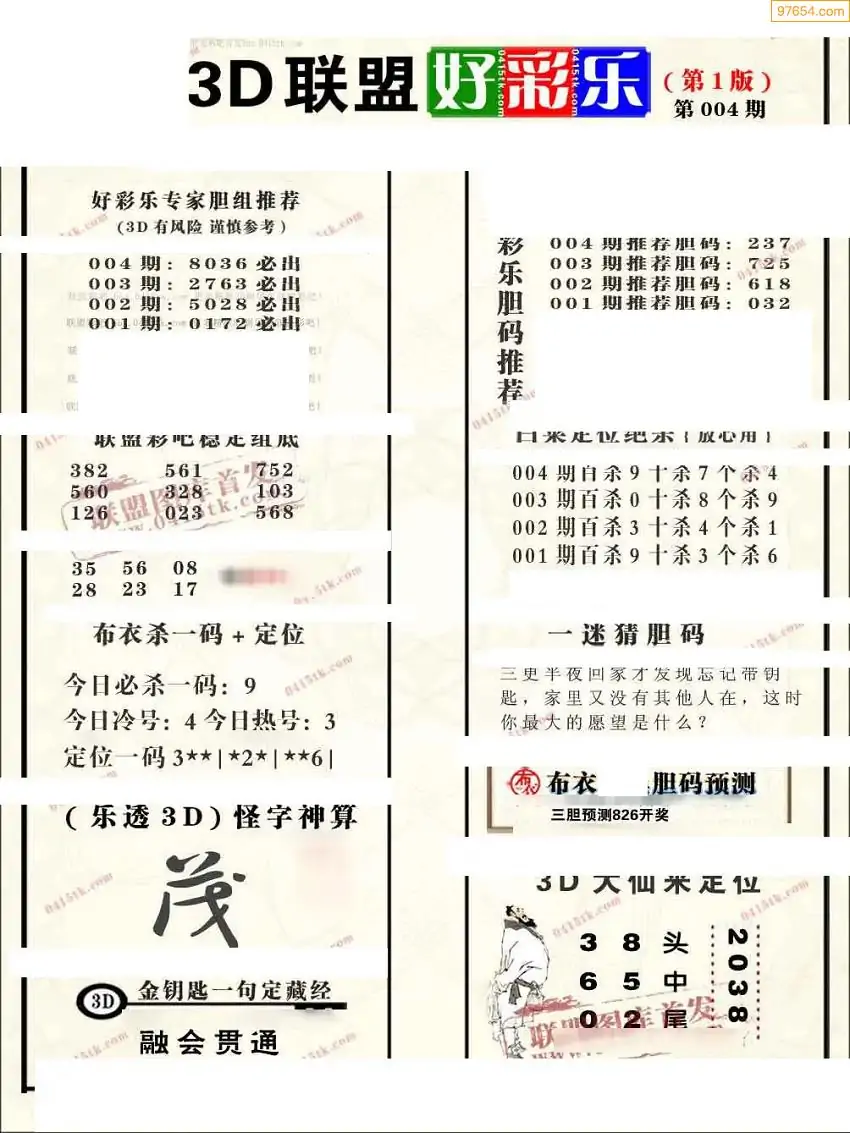 97654.com
3D联盟好彩乐
(第1版)
第004期
好彩乐专家胆组推荐
(3D有风险 谨慎参考)
004期: 8036必出
003期: 2763必出
002期: 5028必出
001期: 0172必出
联盟彩吧稳定组底
382 561 752
560 328 103
126 023 568
35 56 08
28 23 17
布衣杀一码+定位
今日必杀一码: 9
今日冷号: 4 今日热号: 3
定位一码 3**|*2*|**6|
(乐透3D)怪字神算
茂
3D
金钥匙一句定藏经
融会贯通
彩乐胆码推荐
004期推荐胆码: 237
003期推荐胆码: 725
002期推荐胆码: 618
001期推荐胆码: 032
004期百杀9十杀7个杀4
003期百杀0十杀8个杀9
002期百杀3十杀4个杀1
001期百杀9十杀3个杀6
一迷猜胆码
三更半夜回家才发现忘记带钥
匙，家里又没有其他人在，这时
你最大的愿望是什么？
布衣 胆码预测
三胆预测826开奖
3D大仙来定位
3 8 头
6 5 中
0 2 尾
2038
联盟图库首发
www.0415tk.com
0415tk.com